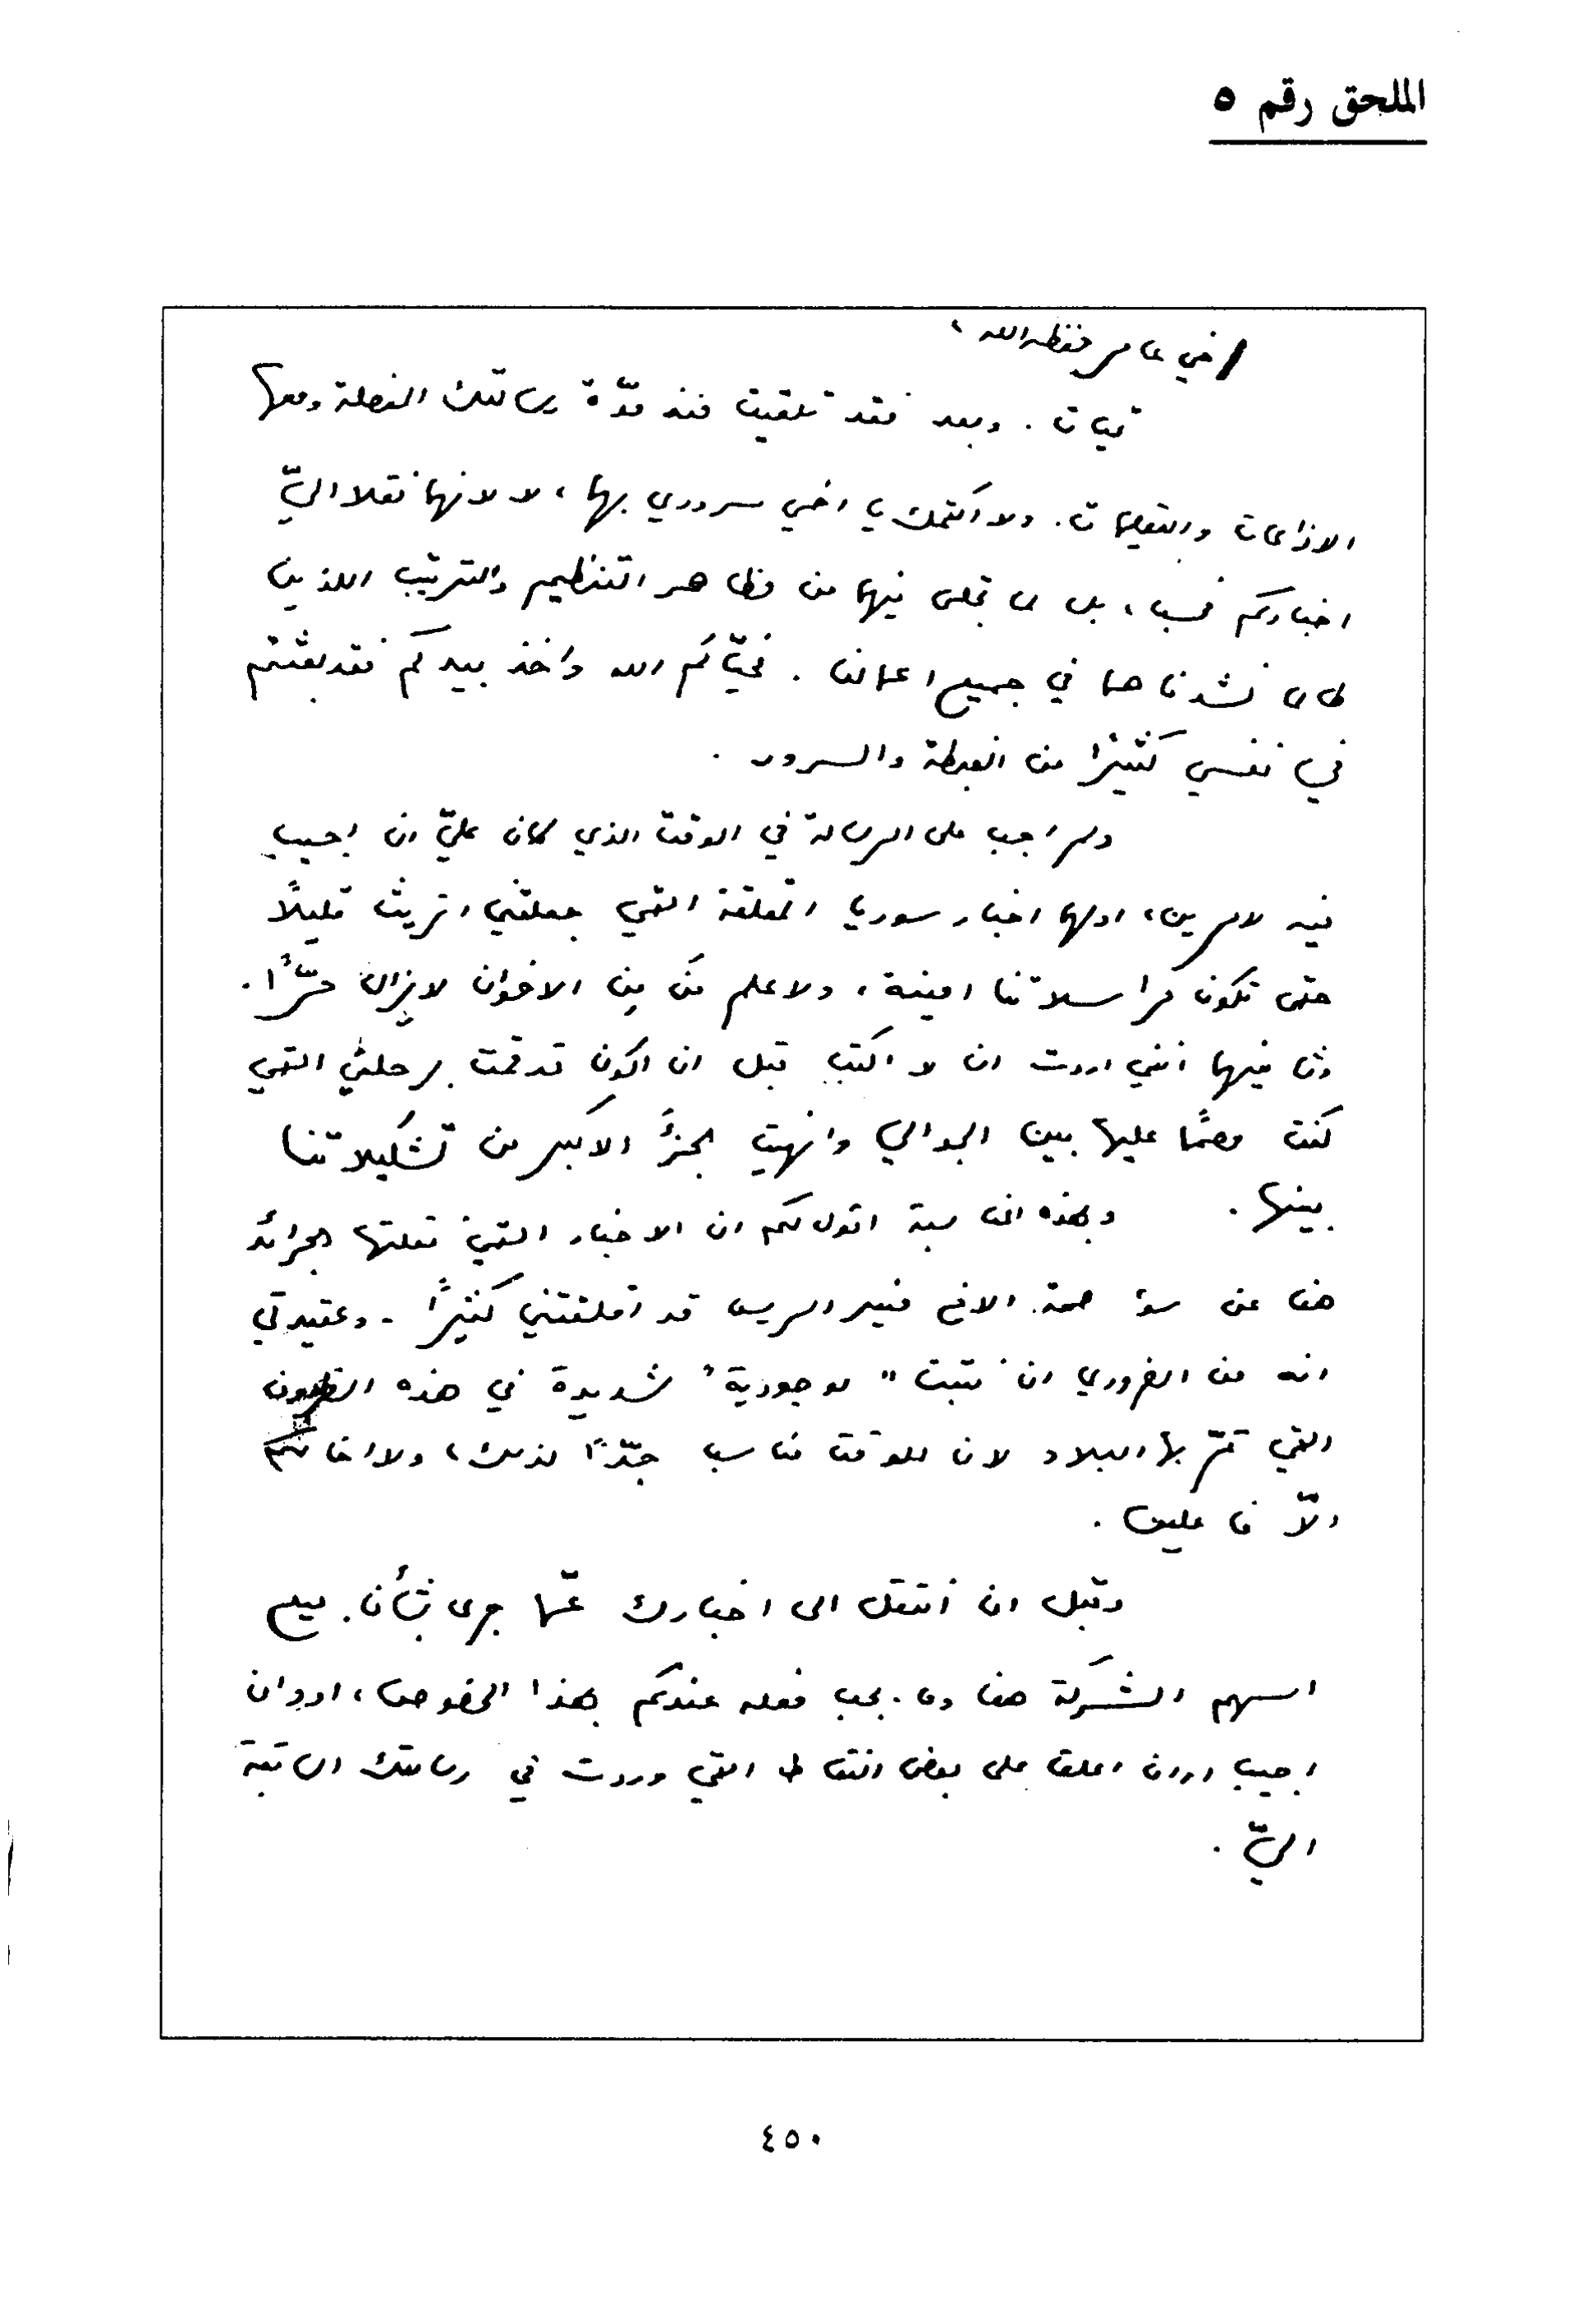 الملحق رقم ٥
اخي عامر حفظه الله،
تحيات. وبعد فقد تلقيت منذ مدّة رسالتك المفصلة ومعها
الاذاعات والتعليمات. ولا اكتمك يا اخي سروري بها، لا لانها نقلا اليّ
اخباركم فحسب، بل لما تجلى فيها من مظاهر التنظيم والترتيب اللذين
طالما نشدناهما في جميع اعمالنا. فحيّاكم الله واخذ بيدكم فقد بعثتم
في نفسي كثيرًا من الغبطة والسرور.
ولم اجب على الرسالة في الوقت الذي كان عليّ ان اجيب
فيه لامرين، اولهما اخبار سوريا المقلقة التي جعلتني اتريث قليلاً
حتى تكون مراسلاتنا امينة، ولاعلم مَن مِن الاخوان لا يزال حرًّا.
وثانيهما انني اردت ان لا اكتب قبل ان اكون قد قمت برحلتي التي
كنت مصممًا عليها بين الجوالي وانهيت الجزأ الاكبر من تشكيلاتنا
بينها. وبهذه المناسبة اقول لكم ان الاخبار التي نقلتها الجرائد
هنا عن سؤ صحة الاخ منير الريس قد اقلقتني كثيرًا. وعقيدتي
انه من الضروري ان نثبت "موجودية" شديدة في هذه الظروف
التي تمرّ بها البلاد لان الوقت مناسب جدًّا لذلك، ولا اخالكم
الاّ فاعلين.
وقبل ان انتقل الى اخبارك عمّا جرى بشأن بيع
اسهم الشركة هنا وما يجب فعله عندكم بهذا الخصوص، اود ان
اجيب او ان اعلق على بعض النقاط التي وردت في رسالتك السابقة
اليّ.
٤٥٠